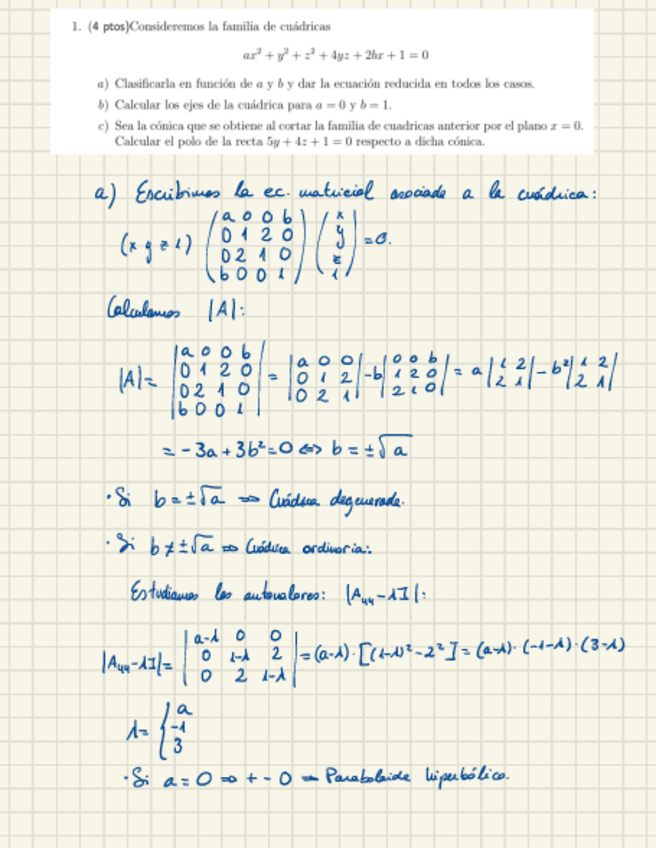 1. (4 ptos)Consideremos la familia de cuádricas
ax² + y² + z² + 4yz + 2bx + 1 = 0
a) Clasificarla en función de a y b y dar la ecuación reducida en todos los casos.
b) Calcular los ejes de la cuádrica para a = 0 y b = 1.
c) Sea la cónica que se obtiene al cortar la familia de cuadricas anterior por el plano x = 0.
Calcular el polo de la recta 5y + 4z + 1 = 0 respecto a dicha cónica.
a) Escribimos la ec. matricial asociada a la cuádrica:
(x y z 1) (a 0 0 b / 0 1 2 0 / 0 2 1 0 / b 0 0 1) (x / y / z / 1) = 0.
Calculamos |A|:
|A| = |a 0 0 b / 0 1 2 0 / 0 2 1 0 / b 0 0 1| = |a 0 0 / 0 1 2 / 0 2 1| - b|0 0 b / 1 2 0 / 2 1 0| = a|1 2 / 2 1| - b²|1 2 / 2 1|
= -3a + 3b² = 0 ⇔ b = ±√a
· Si b = ±√a ⇒ Cuádrica degenerada.
· Si b ≠ ±√a ⇒ Cuádrica ordinaria:
Estudiamos los autovalores: |A₄₄ - λI|:
|A₄₄ - λI| = |a-λ 0 0 / 0 1-λ 2 / 0 2 1-λ| = (a-λ) · [(1-λ)² - 2²] = (a-λ) · (-1-λ) · (3-λ)
λ = { a / -1 / 3
· Si a = 0 ⇒ + - 0 → Paraboloide hiperbólico.